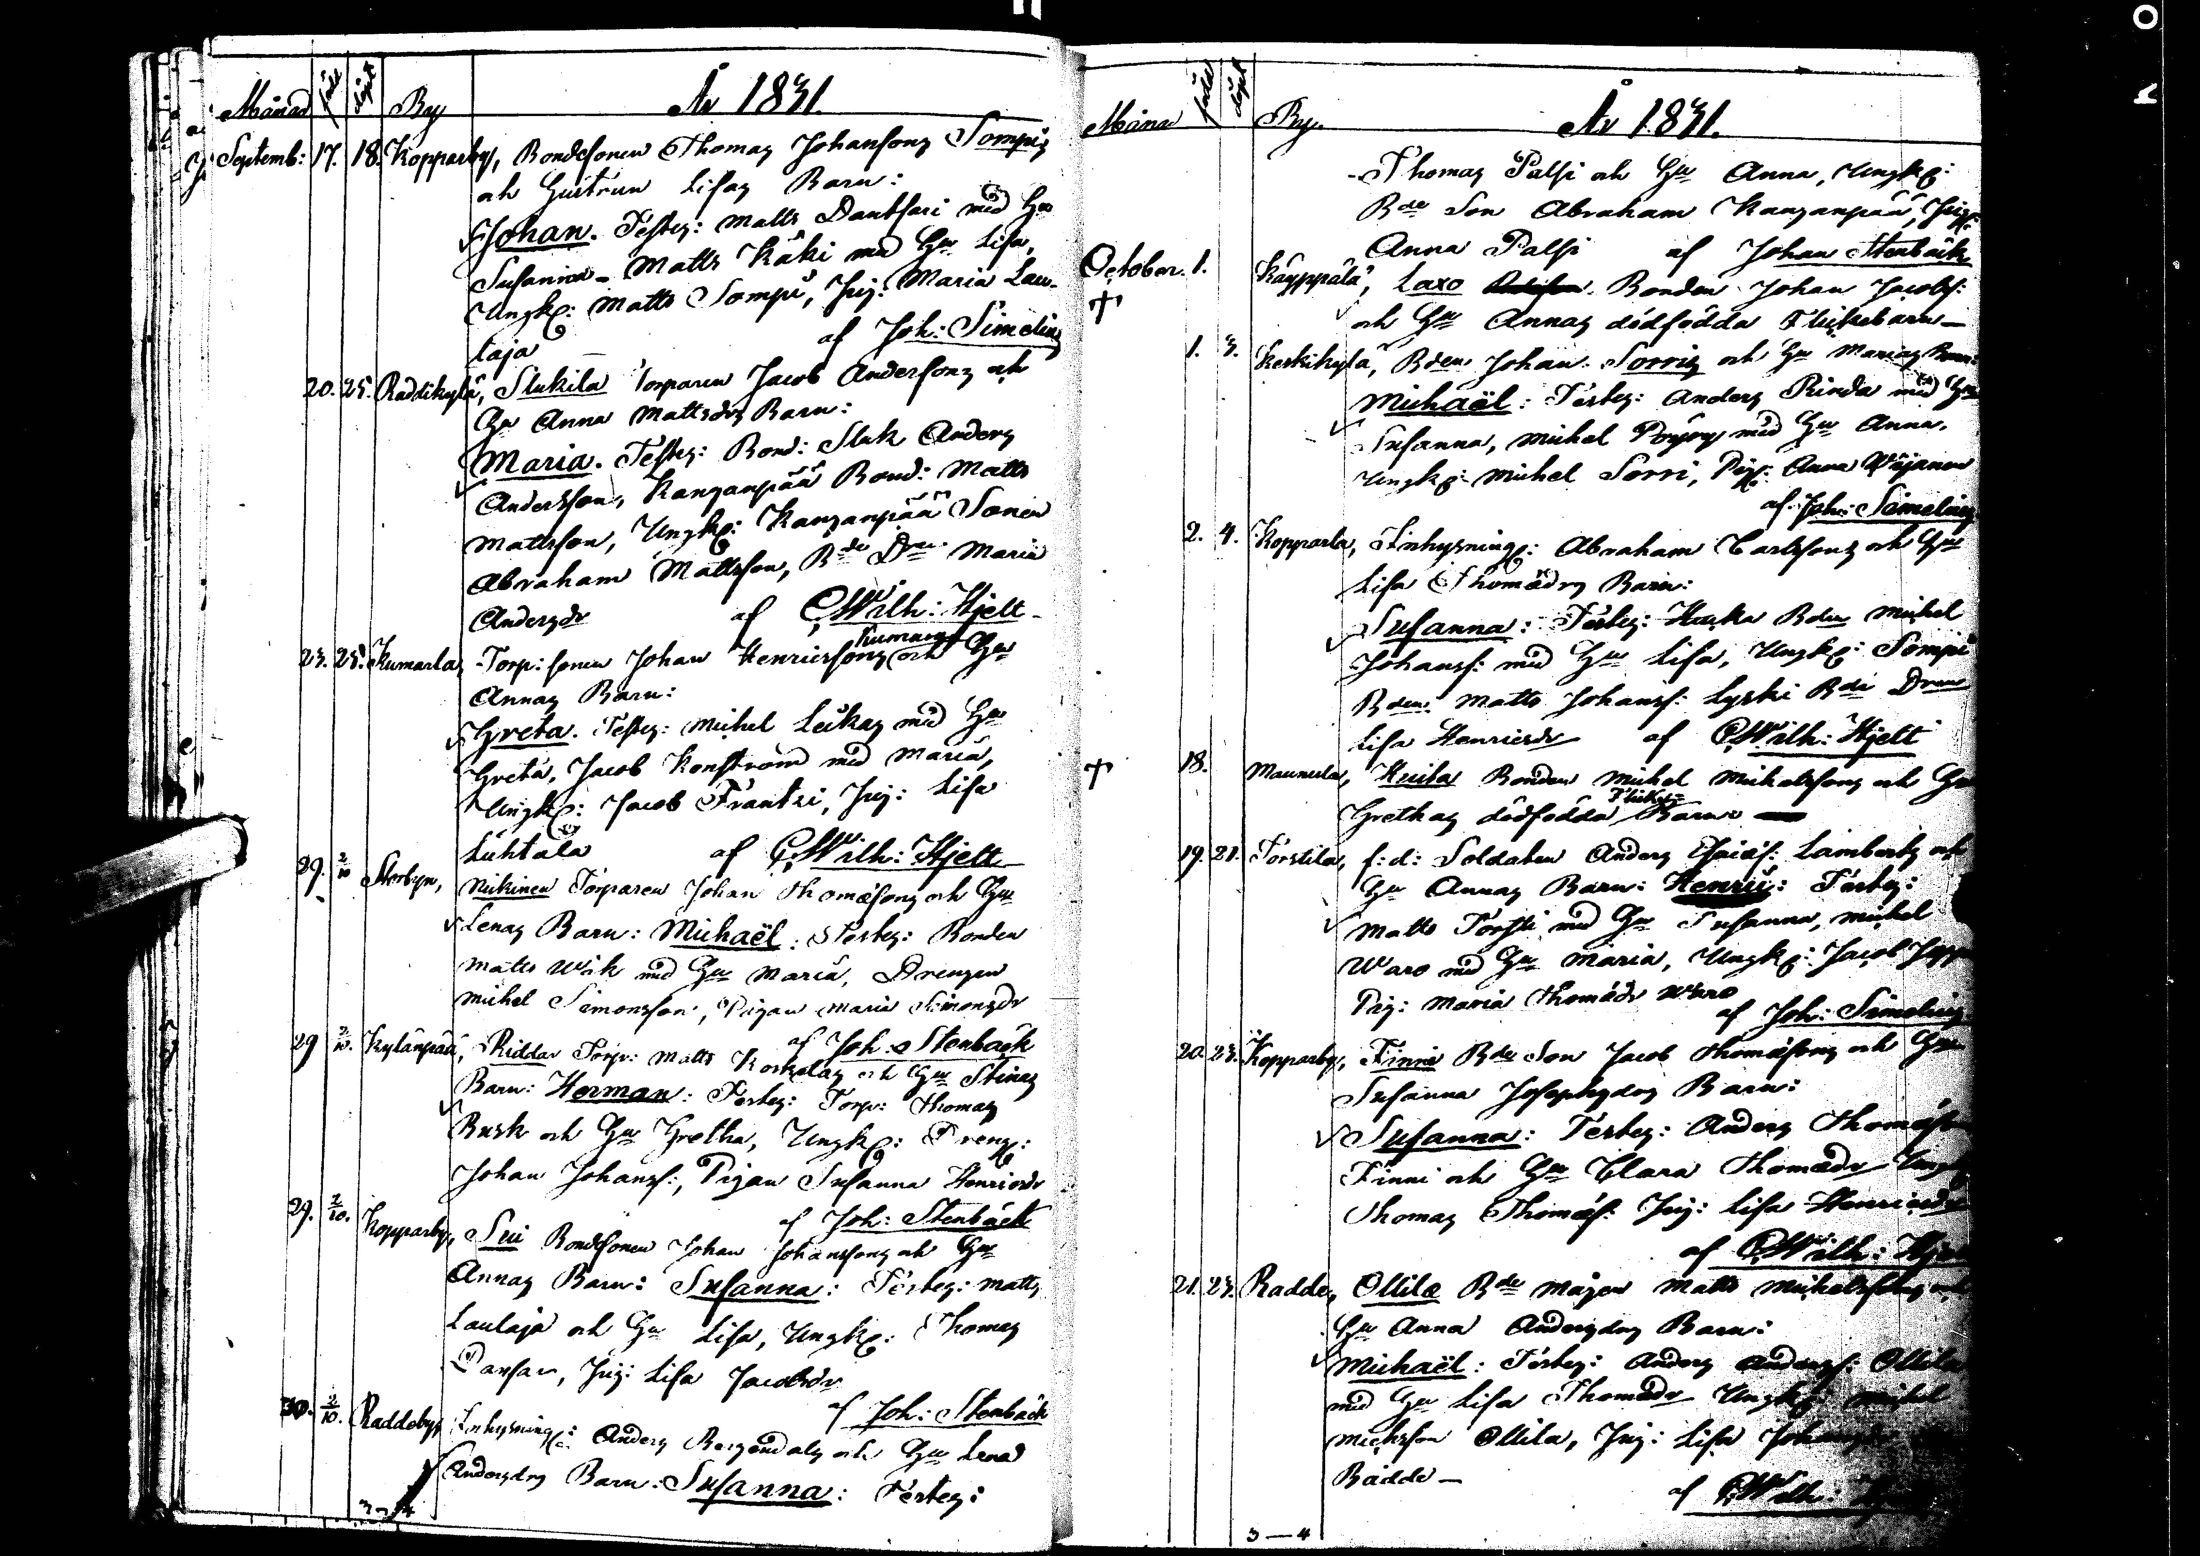 Månad född döpt By År 1831.
Septemb: 17. 18. Kopparby, Bondesonen Thomas Johansons Sompis
och Gustrun Lisas Barn:
Johan. Testes: Matts Dantsari med Hu
Susanna - Matts Käki med Hu Lisa,
Ungk: Matts Sompi, Pig: Maria Lau-
taja af Joh: Simelius
20. 25. Raddikylä, Slukila Torparen Jacob Andersons och
Hu Anna Mattsdrs Barn:
Maria. Testes: Bond: Sluk Anders
Andersson, Kanganpää Bond: Matts
Mattsson, Ungk: Kanganpää Sonen
Abraham Mattsson, Bde Dr. Maria
Andersdr af CWilh: Hjelt
23. 25. Kumarla, Torp: sonen Johan Henricsons och Hu
Annas Barn:
Greta. Testes: Michel Leikas med Hu
Greta, Jacob Konström med Maria,
Ungk: Jacob Frantsi, Pig: Lisa
Luhtala af CWilh: Hjelt
29. 2/10 Storbyn, Nikinen Torparen Johan Thomæsons och Hu
Lenas Barn: Michaël: Testes: Bonden
Matts Wik med Hu Maria, Drengen
Michel Simonsson, Pigan Maria Simonsdr
af Joh: Stenbäck
29 2/10. Kylänpää, Riddar Torp: Matts Koskelas och Hu Stinas
Barn: Herman: Testes: Torp: Thomas
Rusk och Hu Gretha, Ungk: Dreng:
Johan Johanss:, Pigan Susanna Henricsdr
af Joh: Stenbäck
29. 2/10. Kopparby, Sui Bondesonen Johan Johansons och Hu
Annas Barn: Susanna: Testes: Matts
Laulaja och Hu Lisa, Ungk: Thomas
Pig: Lisa Jacobsdr
af Joh: Stenbäck
30. 2/10. Raddeby, Inhysning: Anders Bergendals och Hu Lena
Andersdrs Barn: Susanna: Testes:
3-4
Måna född döpt By. År 1831.
Thomas Palsi och Hu Anna, Ungk:
Bde Son Abraham Kanganpää, Pig:
Anna Palsi af Johan Stenbäck
October. 1. Käyppälä, Laxo Bonden Johan Jacobs:
och Hu Annas dödfödda Flickebarn
1. 3. Keskikylä, Bden Johan Sorris och Hu Marias Barn:
Michaël: Testes: Anders Rinda med Hu
Susanna, Michel med Hu Anna.
Ungk: Michel Sorri, Pig: Anna Wäjanen
af Joh: Simelius
2. 4. Kopparla, Inhysning: Abraham Carlssons och Hu
Lisa Thomædrs Barn:
Susanna: Testes: Bden Michel
Johanss: med Hu Lisa, Ungk: Sompi
Bden: Matts Johanss: Lyski Bde Dren
Lisa Henricsdr af CWilh: Hjelt
18. Maunula, Bonden Michel Michelssons och Hu
Grethas dödfödda Flicke- Barn
19. 21. Torstila, f: d: Soldaten Anders Lamberts och
Hu Annas Barn: Henric: Testes:
Matts Torsti med Hu Susanna, Michel
Waro med Hu Maria, Ungk: Jacob
Pig: Maria Thomædr Waro af Joh: Simelius
20. 23. Kopparby, Finni Bde Son Jacob Thomæsons och Hu
Susanna Josephsdrs Barn:
Susanna: Testes: Anders Thomæson
Finni och Hu Clara Thomædr Ungk
Thomas Thomæs: Pig: Lisa Henricsdr
af CWilh: Hjelt
21. 23. Radde, Ollila Bde mågen Matts Michelssons och
Hu Anna Andersdrs Barn:
Michaël: Testes: Anders Anderss: Ollila
med Hu Lisa Thomædr Ungk: Michel
Michsson Ollila, Pig: Lisa
Radde af CWilh:
3-4